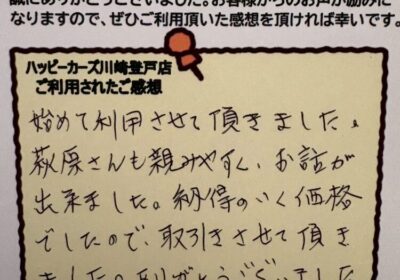 誠にありがとうございました。お客様からのお声が励みに
なりますので、ぜひご利用頂いた感想を頂ければ幸いです。
ハッピーカーズ川崎登戸店
ご利用されたご感想
始めて利用させて頂きました。
萩原さんも親みやすく、お話が
出来ました。納得のいく価格
でしたので、取引きさせて頂き
ました。ありがとうございました